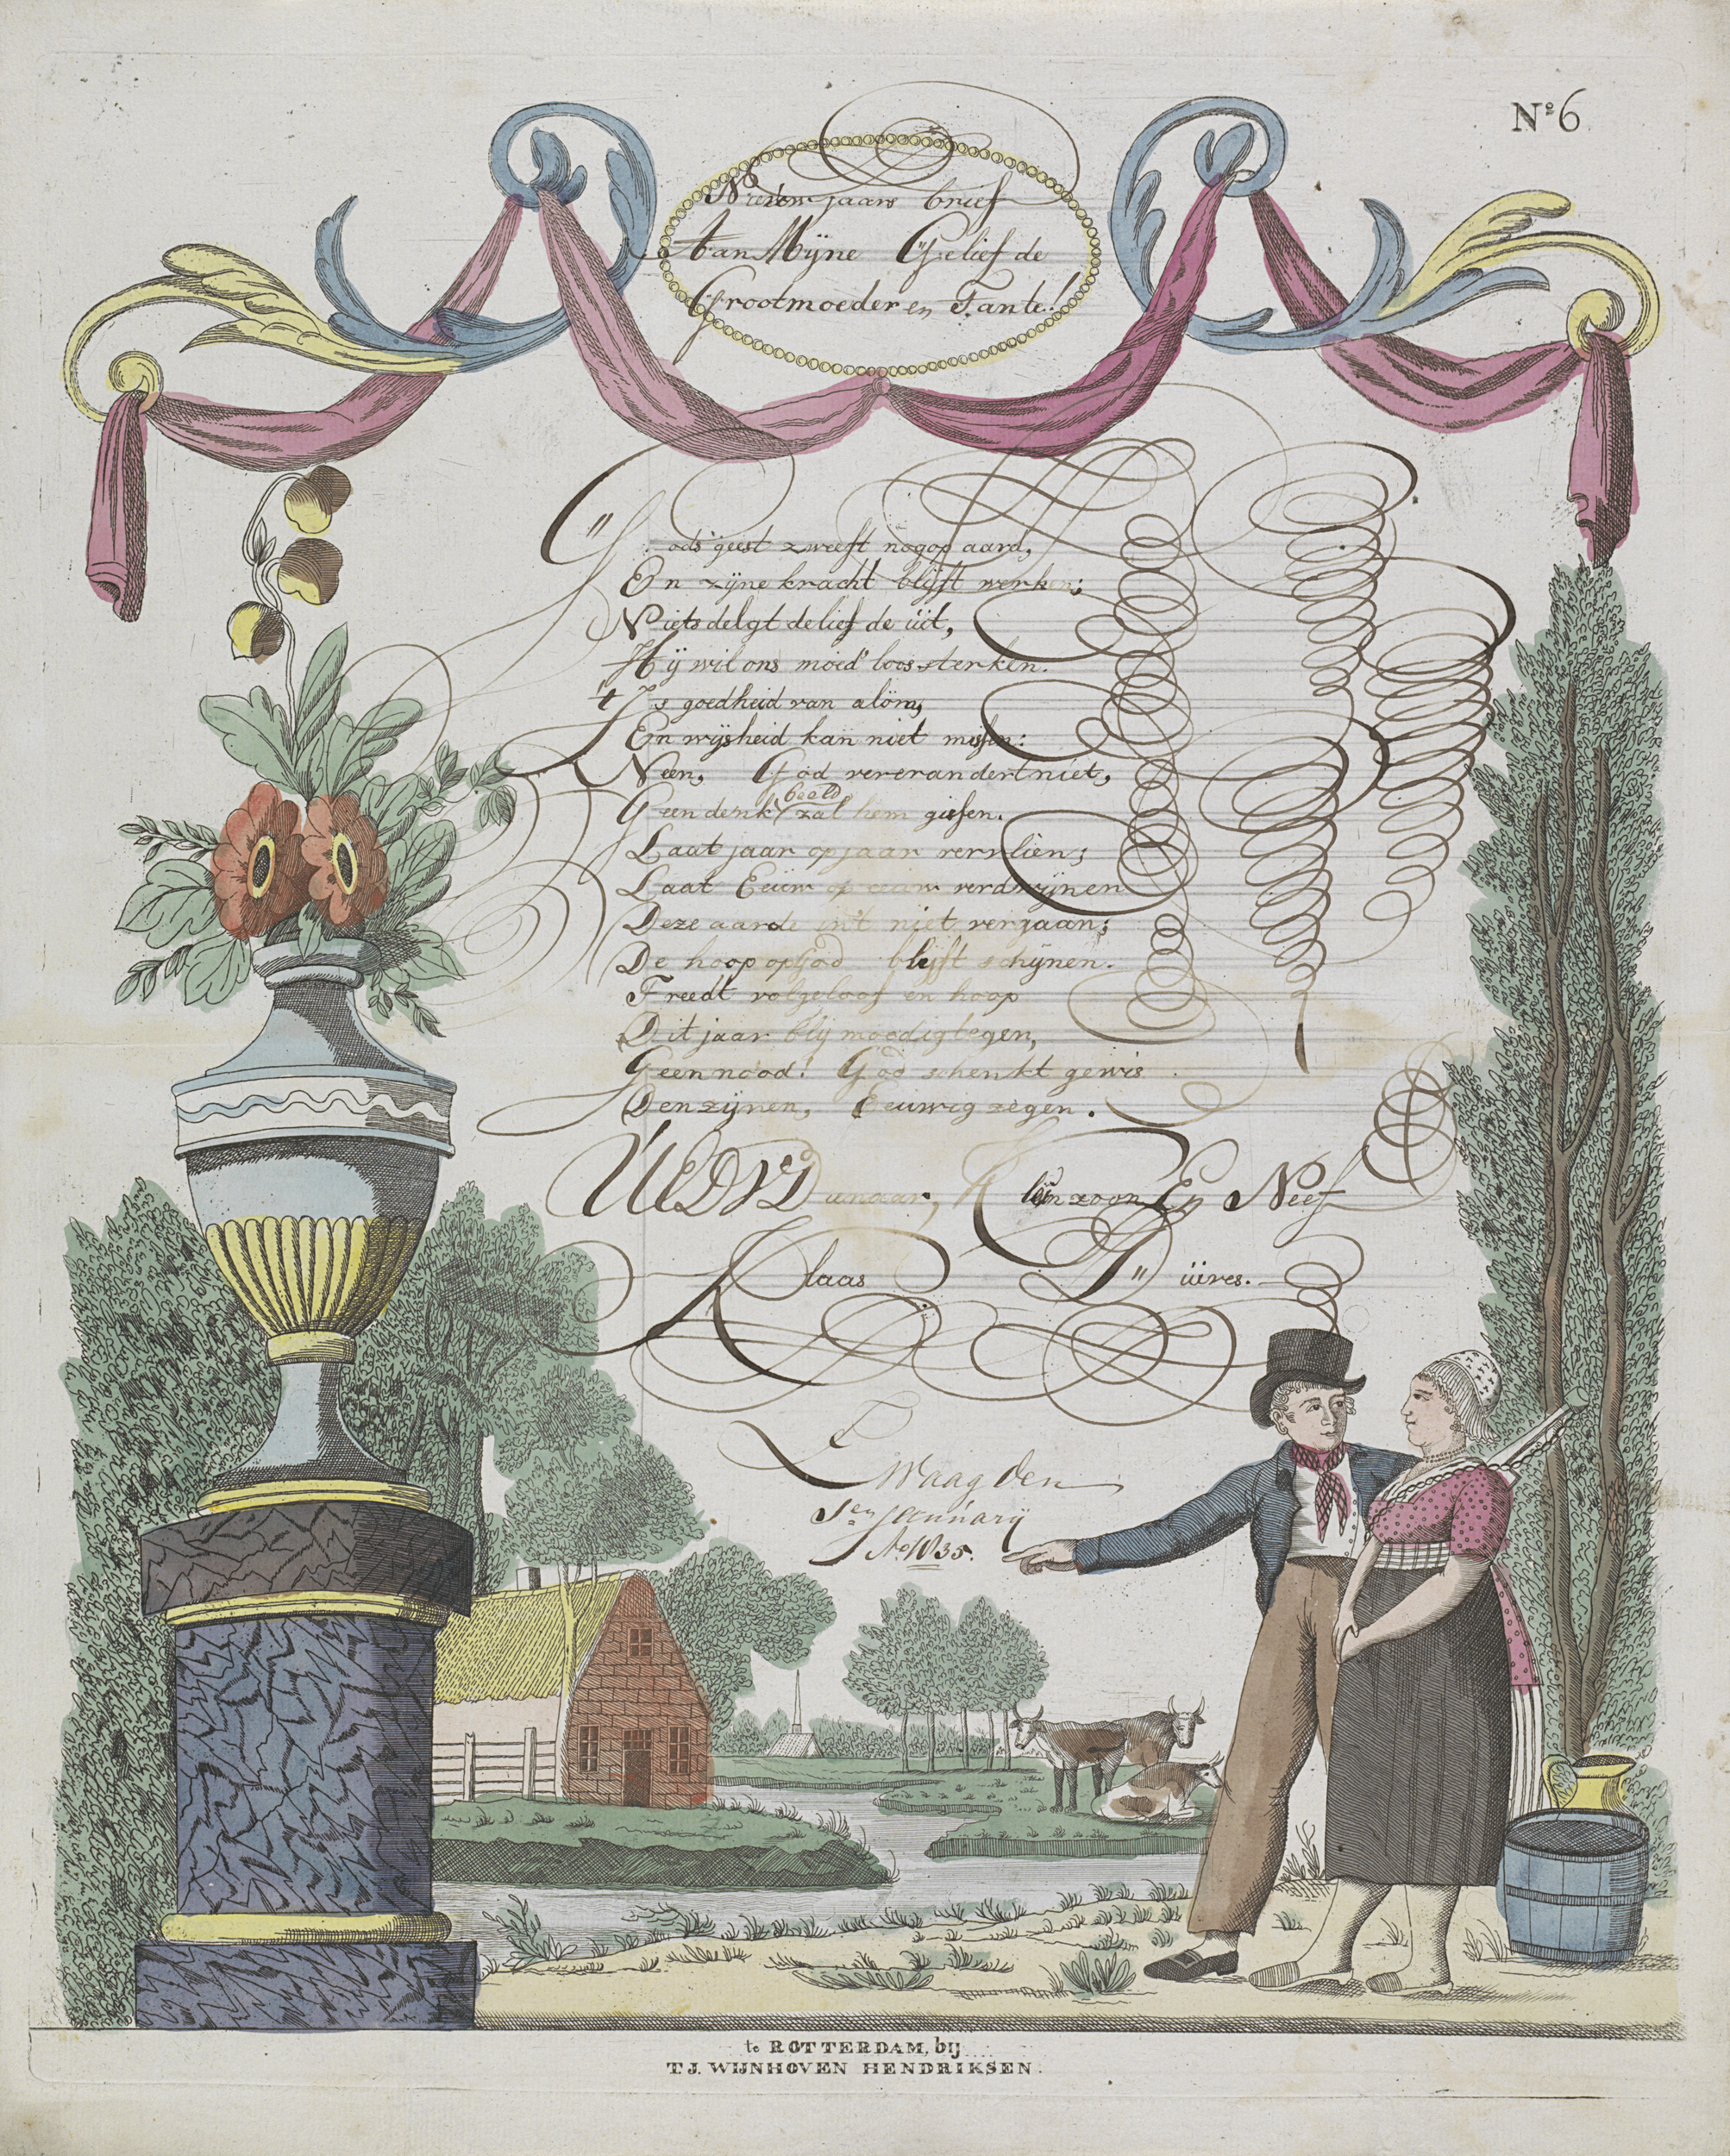 Nº 6
Nieuw jaars brief
Aan Mijne Geliefde
Grootmoeder en Tante!
Gods geest zweeft nog op aard,
En zijne kracht blijft werken;
Niets delgt de liefde uit,
Hij wil ons moed'loos sterken.
't Is goedheid van alöm,
En wijsheid kan niet missen:
Neen, God vererandert niet,
Geen denk beeld zal hem gissen.
Laat jaar op jaar vervliên;
Laat Eeuw op eeuw verdwijnen
Deze aarde in't niet vergaan;
De hoop op God blijft schijnen.
Treedt vol geloof en hoop
Dit jaar blij moedig tegen,
Geen nood! God schenkt gewis
Den zijnen, Eeuwig zegen.
UEDWD Dienaar, Kleinzoon En Neef
Klaas Duives.
Waag den
1en Januarij
Ao 1835.
te ROTTERDAM, bij
T. J. WIJNHOVEN HENDRIKSEN.